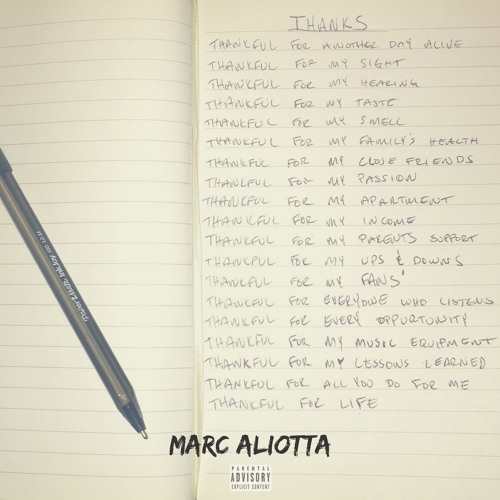 THANKS
THANKFUL FOR ANOTHER DAY ALIVE
THANKFUL FOR MY SIGHT
THANKFUL FOR MY HEARING
THANKFUL FOR MY TASTE
THANKFUL FOR MY SMELL
THANKFUL FOR MY FAMILY'S HEALTH
THANKFUL FOR MY CLOSE FRIENDS
THANKFUL FOR MY PASSION
THANKFUL FOR MY APARTMENT
THANKFUL FOR MY INCOME
THANKFUL FOR MY PARENTS SUPPORT
THANKFUL FOR MY UPS & DOWNS
THANKFUL FOR MY FANS'
THANKFUL FOR EVERYONE WHO LISTENS
THANKFUL FOR EVERY OPPURTUNITY
THANKFUL FOR MY MUSIC EQUIPMENT
THANKFUL FOR MY LESSONS LEARNED
THANKFUL FOR ALL YOU DO FOR ME
THANKFUL FOR LIFE
MARC ALIOTTA
PARENTAL
ADVISORY
EXPLICIT CONTENT